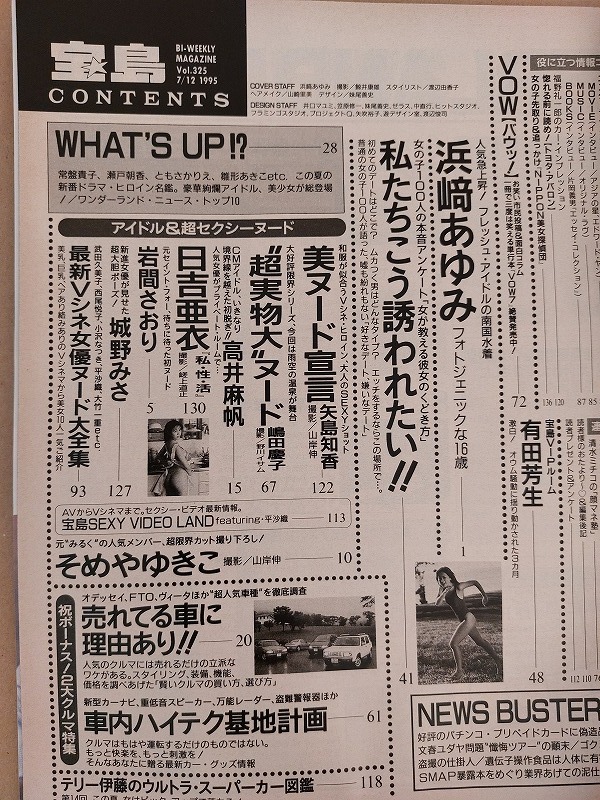 宝島
BI-WEEKLY
MAGAZINE
Vol.325
7/12 1995
CONTENTS
COVER STAFF 浜崎あゆみ 撮影/鯨井康雄 スタイリスト/渡辺由香子
ヘアメイク/山崎里美 デザイン/妹尾善史
DESIGN STAFF 井口マユミ、笠原修一、妹尾善史、ゼラス、中直行、ヒットスタジオ、
フラミンゴスタジオ、プロジェクトQ、矢吹裕子、遊デザイン室、渡辺俊司
役に立つ情報コ
MOVIE
MUSIC
BOOKS
VOW【バウッ！】
お笑い市民投稿＆面白コラム
72
136
120
87
85
人気急上昇！ フレッシュ・アイドルの南国水着
浜﨑あゆみ フォトジェニックな16歳
1
女の子100人の本音アンケート。“女が教える彼女のくどき方”
私たちこう誘われたい!!
41
宝島VIPルーム
有田芳生
激白！ オウム騒動に揺り動かされた3カ月
48
清水ミチコの「顔マネ塾」
読者プレゼント＆アンケート
112
110
WHAT'S UP!?
28
常盤貴子、瀬戸朝香、ともさかりえ、雛形あきこetc. この夏の
新番ドラマ・ヒロイン名鑑。豪華絢爛アイドル、美少女が総登場
！／ワンダーランド・ニュース・トップ10
アイドル&超セクシーヌード
和服が似合うVシネ・ヒロイン、大人のSEXYショット
美ヌード宣言 矢島知香
撮影／山岸伸
122
大好評限界シリーズ、今回は雨空の温泉が舞台
“超実物大”ヌード 嶋田慶子
撮影／野川イサム
67
CMアイドル、いきなり
境界線を越えた初脱ぎ!!
高井麻帆
15
人気女優がプライベート・ルームで…
日吉亜衣「私性活」
撮影／塙上遼正
130
元セイントフォー 待ちに待った初ヌード
岩間さおり
5
新進女優が見せた
超大胆ポーズ！
城野みさ
127
武田久美子、西尾悦子、小沢なつき、平沙織、大竹一重etc.
最新Vシネ女優ヌード大全集
93
美乳、巨乳ヘアあり絡みありのVシネマから美女10人一気ご紹介
AVからVシネマまで。セクシー・ビデオ最新情報。
宝島SEXY VIDEO LAND featuring・平沙織 113
元“みるく”の人気メンバー、超限界カット撮り下ろし！
そめやゆきこ 撮影／山岸伸 10
祝ボーナス！2大クルマ特集
オデッセイ、FTO、ヴィータほか“超人気車種”を徹底調査
売れてる車に
理由あり!! 20
人気のクルマには売れるだけの立派な
ワケがある。スタイリング、装備、機能、
価格を調べあげた「賢いクルマの買い方、選び方」
新型カーナビ、重低音スピーカー、万能レーダー、盗難警報器ほか
車内ハイテク基地計画 61
クルマはもはや運転するだけのものではない。
もっと快楽を、もっと刺激を！
そんなあなたに贈る最新カー・グッズ情報
テリー伊藤のウルトラ・スーパーカー図鑑 118
NEWS BUSTER
好評のパチンコ・プリペイドカードに偽造品
文春ユダヤ問題“懺悔ツアー”の顛末／ゴク
盗聴の仕掛人／遺伝子操作食品は人体に有
SMAP暴露本をめぐり業界あげての泥仕